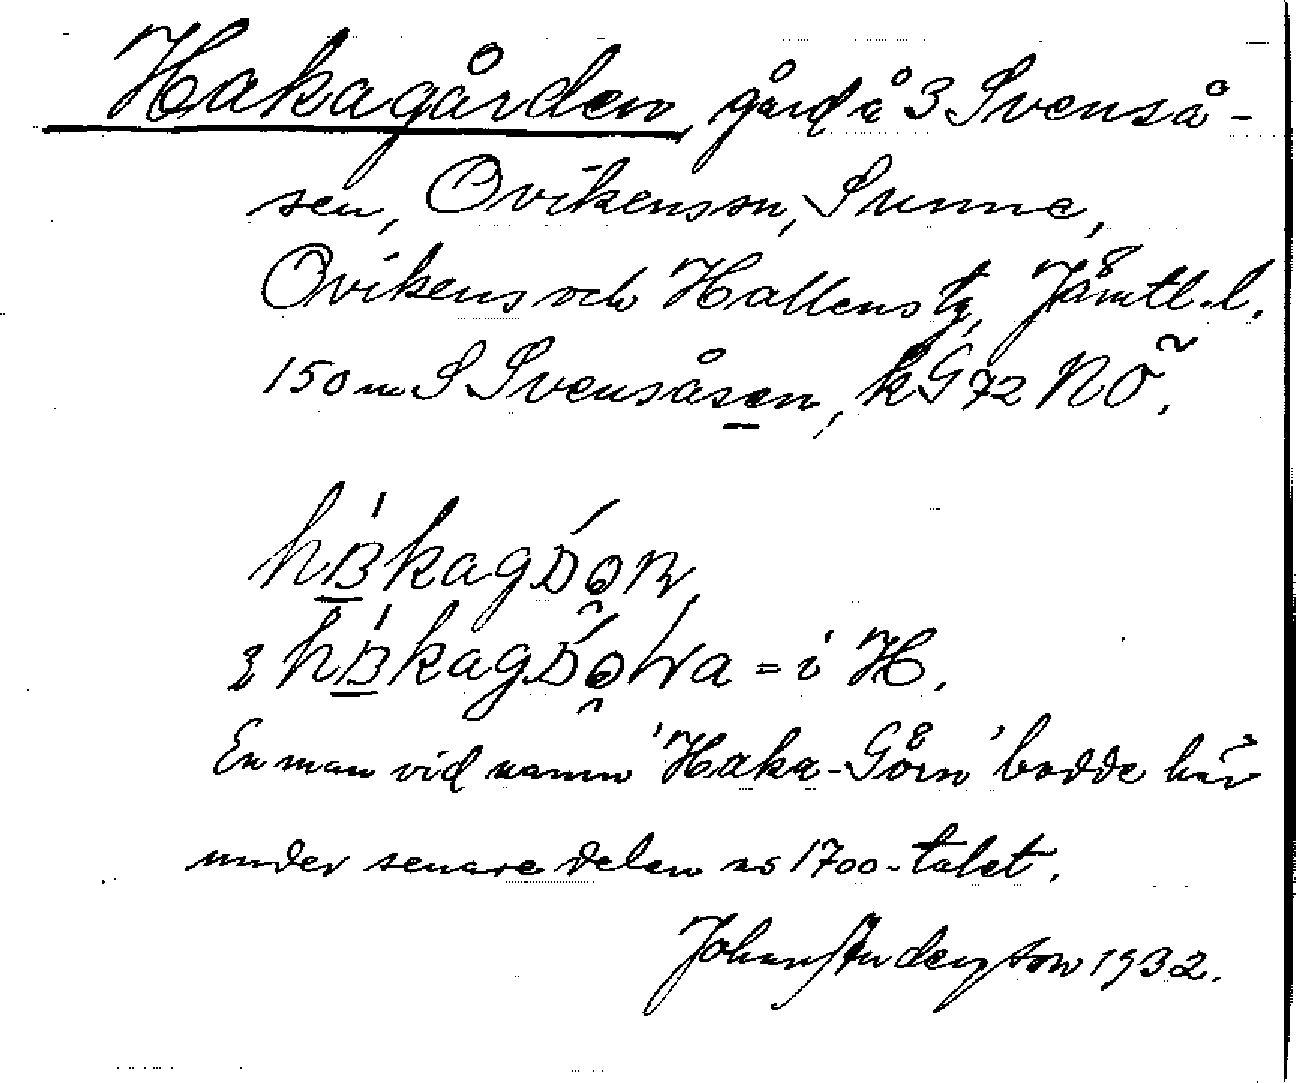 Hakagården, gård å 3 Svenså-
sen, Ovikens sn, Sunne,
Ovikens och Hallens tg, Jämtl. l.
150 m S Svensåsen, kG 72 NO.
= i H.
En man vid namn 'Haka-Görn' bodde här
under senare delen av 1700-talet.
Johan Anderson 1932.